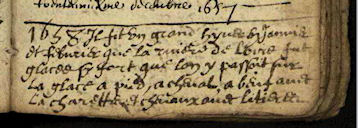 decembre 1657
1658. Il fit un grand hyver es Janvier
et febvrier que la riviere de Loire fut
glacee sy fort que lon y passoit sur
la glace a pied, a cheval, a beuf avec
la charette et chevaux avec litiere